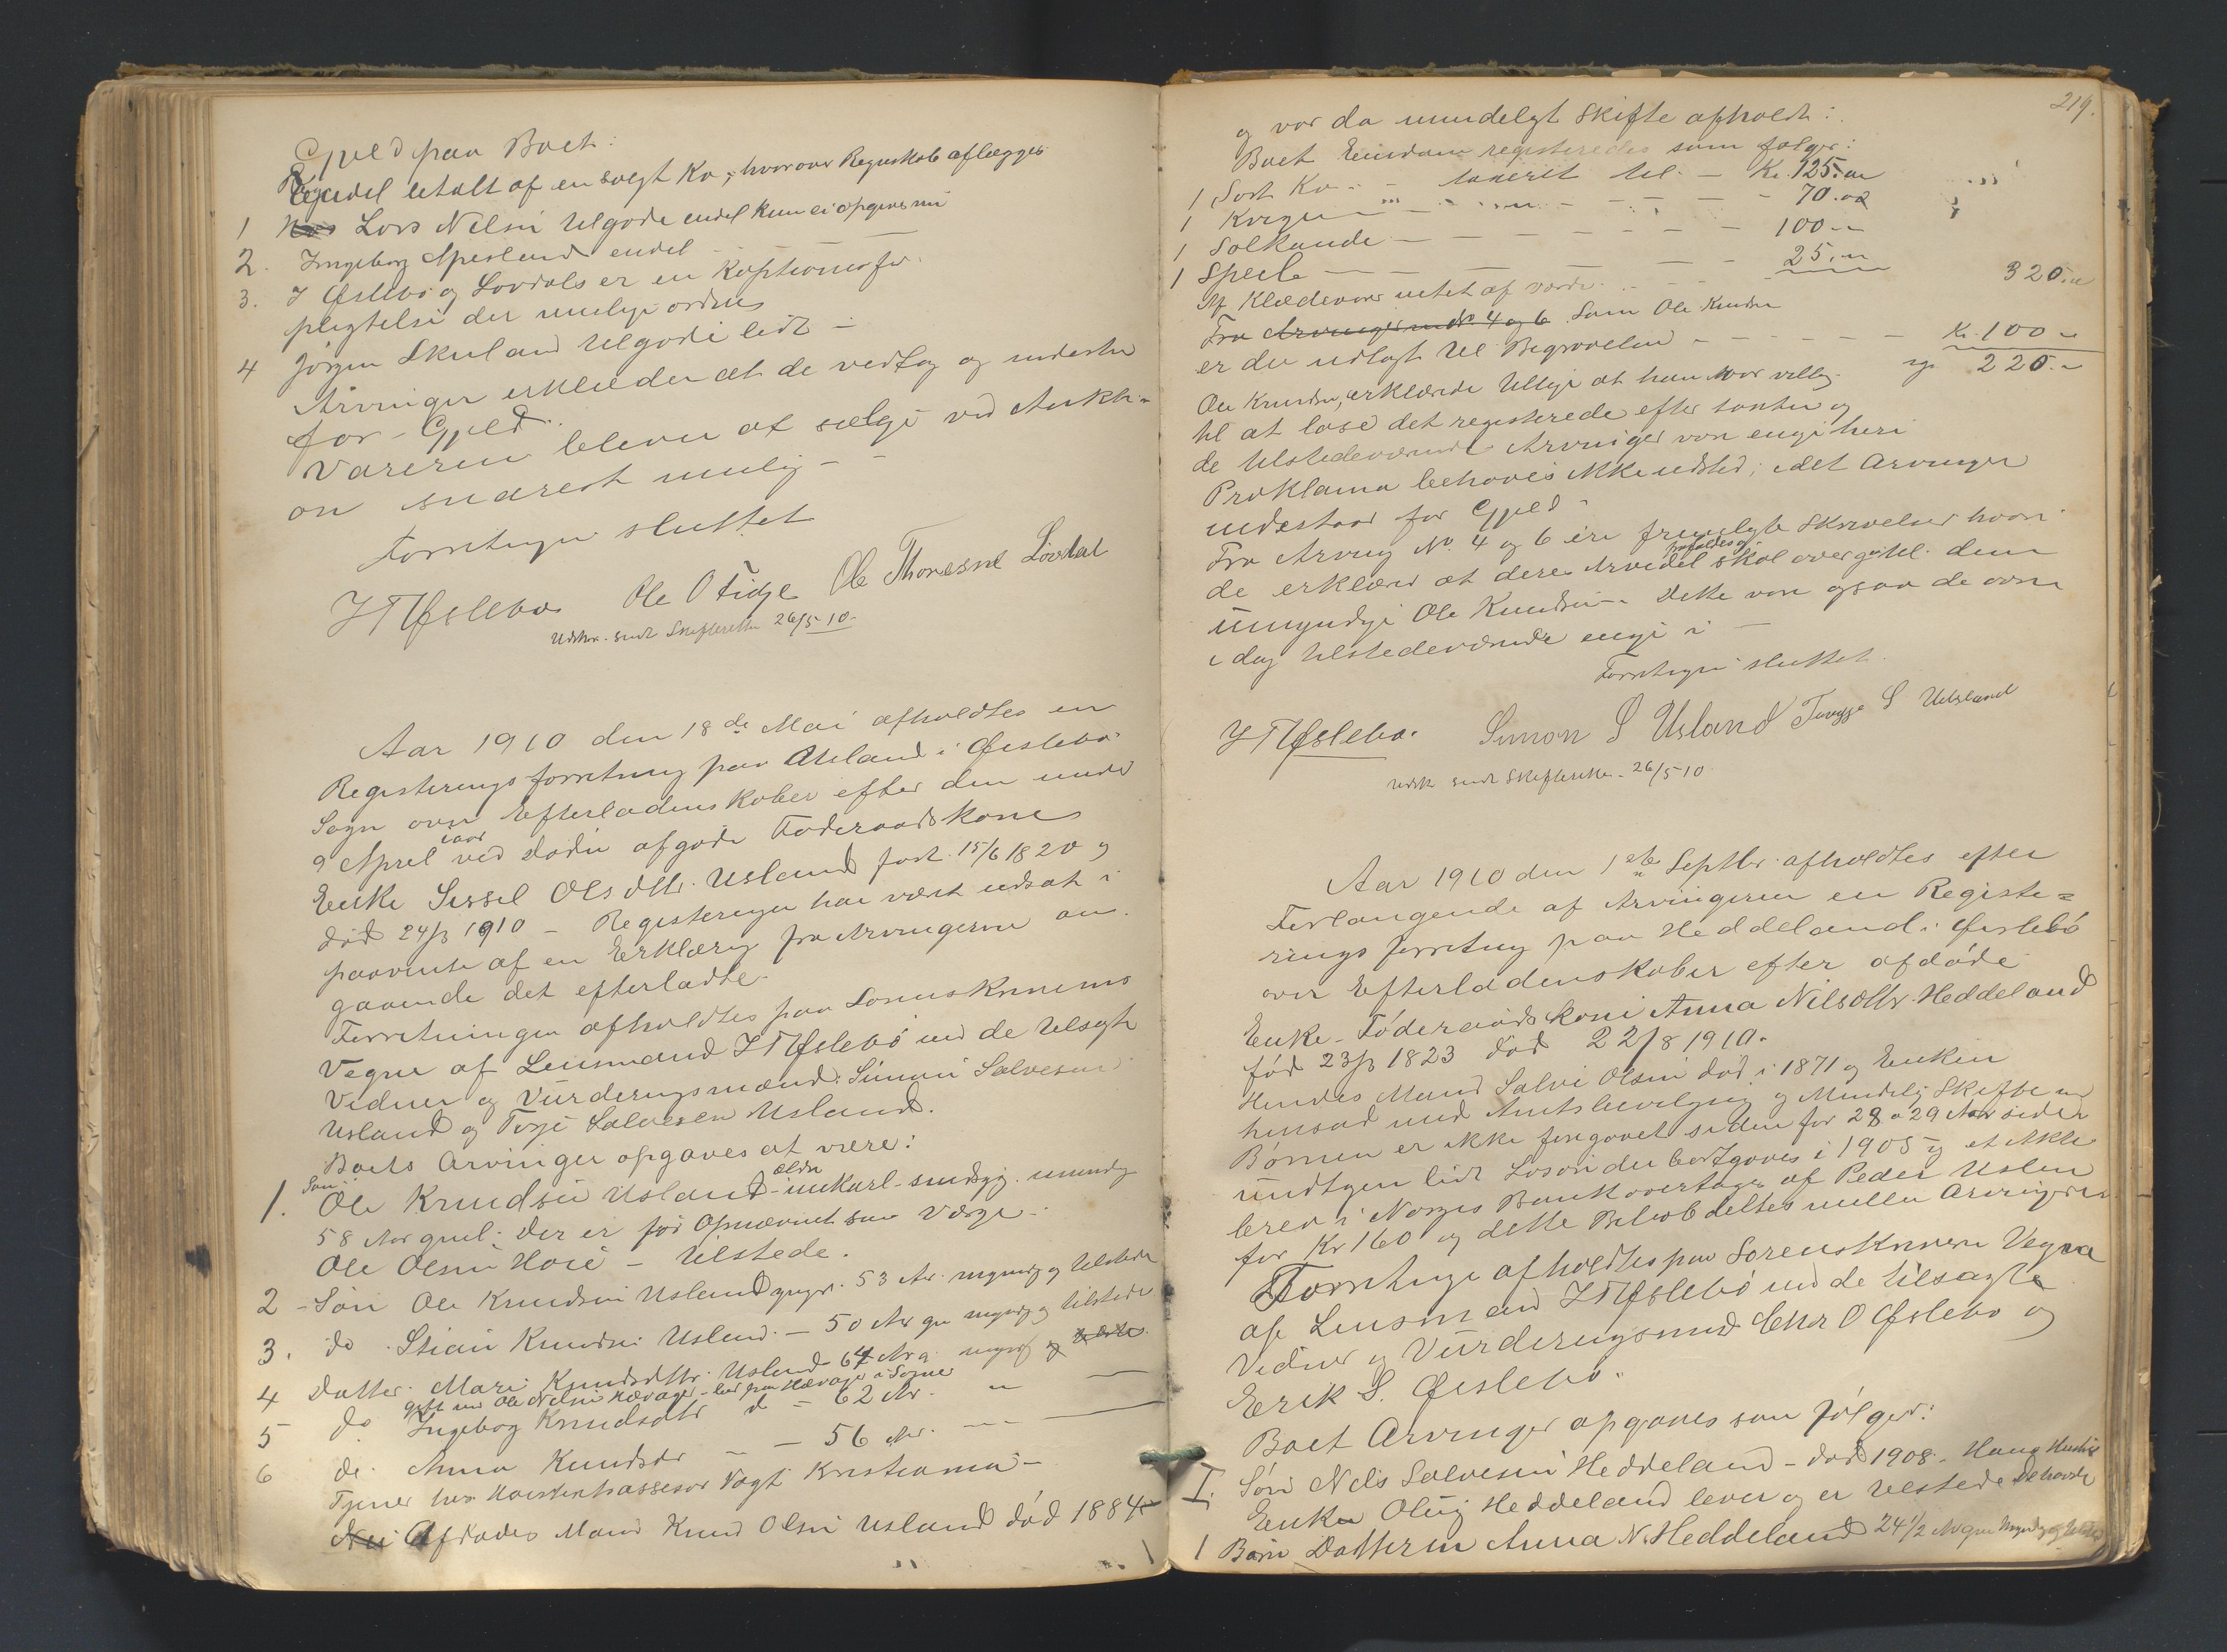 Gjeld paa Boet:
endel betalt af en solgt Ko; hvorover Regnskab aflægges
1 Lars Nilsen tilgode endel kan ei opgives nu
2. Ingeborg Upesland endel
3. I Øslebø og Løvdals er en Kaptions for
pligtelse der muligt ordnes
4 Jørgen Skuland tilgode lidt –
Arvinger erklærder at de vedtog og indestaar
for Gjeld.
Varerne bleven at sælge ved Auktion
on snarest mulig –
Forretningen sluttet
I T Øslebø Ole O Tidje Ole Thoresen Løvdal
Udskr. sendt Skifteretten 26/5 10.
Aar 1910 den 18de Mai afholdtes en
Registeringsforretning paa Usland i Øislebø
Sogn over Efterladenskaber efter den under
9 April iaar ved Døden afgade Føderaadskone
Enke Sissel Olsdtr. Usland født 15/6 1820 og
død 24/3 1910 – Registeringen har været udsat i
paavente af en Erklæring fra Arvingerne an
gaaende det efterladte.
Forretningen afholdtes paa Sorenskriverens
Vegne af Lensmand I T Øslebø med de tilsagte
Vidner og Vurderingsmænd: Simon Salvesen
Usland og Terje Salvesen Usland.
Boets Arvinger opgaves at være:
1. Søn Ole Knudsen Usland – ældre unkarl – sindsyg. umyndig
58 Aar gml. Der er før Opnævnt som Værge
Ole Olsen Høie – tilstede.
2 – Søn Ole Knudsen Usland yngr. 53 Aar. myndig og tilstede
3. do Stian Knudsen Usland. – 50 Aar gm myndig og tilstede
4 Datter. Mari Knudsdtr. Usland 64 Ar g. myndig og
gift med Ole Nilsen Hævager – bor paa Hævager i Sogne
5 do Ingeborg Knudsdtr do – 62 Ar. " —
6 do. Anna Knudsdr — – 56 Ar. — —
Tjener hos Høiesteretsassesor Vogt Kristiania –
Afdødes Mand Knud Olsen Usland død 1884
219.
og var da mundeligt Skifte afholdt:
Boet Eiendom registeredes som følger:
1 Sort Ko – – taxerit til – Kr. 125.00
1 Kvige – – – – – – 70.00
1 Sølkande – – – – – – 100 –
1 Speil – – – – – 25.00 320.00
Af Klædevarer intet af værdi.
Fra Arvingerne No. 4 og 6 Søn Ole Knudsen
er der udlagt til Begravelsen – – – – – Kr. 100 –
220.–
Ole Knudsen, erklærede tillige at han var villig
til at løse det registerede efter taxten og
de tilstedeværende Arvinger var enige heri
Proklama behøves ikke udsted; idet Arvinger
indestaar for Gjeld –
Fra Arving No. 4 og 6 ere fremlagte Skrivelser hvori
de erklærer at deres Arvedel skal overgaa til den
umyndige Ole Knudsen. Dette var ogsaa de øvrige
i dag tilstedeværende enige i –
Forretningen sluttet.
I T Øslebø. Simon S Usland Terje S Udsland
Udsk sendt Skifteretten. 26/5 10
Aar 1910 den 1ste Septbr. afholdtes efter
Forlangende af Arvingerne en Registe=
rings forretning paa Heddeland i Øislebø
over Efterladenskaber efter afdøde
Enke – Føderaadskone Anna Nilsdtr. Heddeland
født 23/3 1823 død 22/8 1910.
Hendes Mand Salve Olsen død i 1871 og Enken
hensad med Amtsbevilgning og Mindelig Skifte m
Børnene er ikke foregaaet siden for 28 a 29 Aar siden
undtagen lidt Løsøre der bortgaves i 1905 og et Aktie
brev i Norges Bank overtages af Peder Uslen
for Kr 160 og dette Beløb deltes mellem Arvingerne
Forretnige afholdtes paa Sorenskriverens Vegne
af Lensmand I T Øslebø med de tilsagte
Vidner og Vurderingsmænd Chr O Øslebø og
Erik S. Øislebø.
Boet Arvinger opgaves som følger:
I. Søn Nils Salvesen Heddeland – død 1908. Hans Hustru
Enke Olug Heddeland lever og er tilstede de havde
1 Barn Datteren Anna N. Heddeland 24½ Ar gm Myndig og tilstede